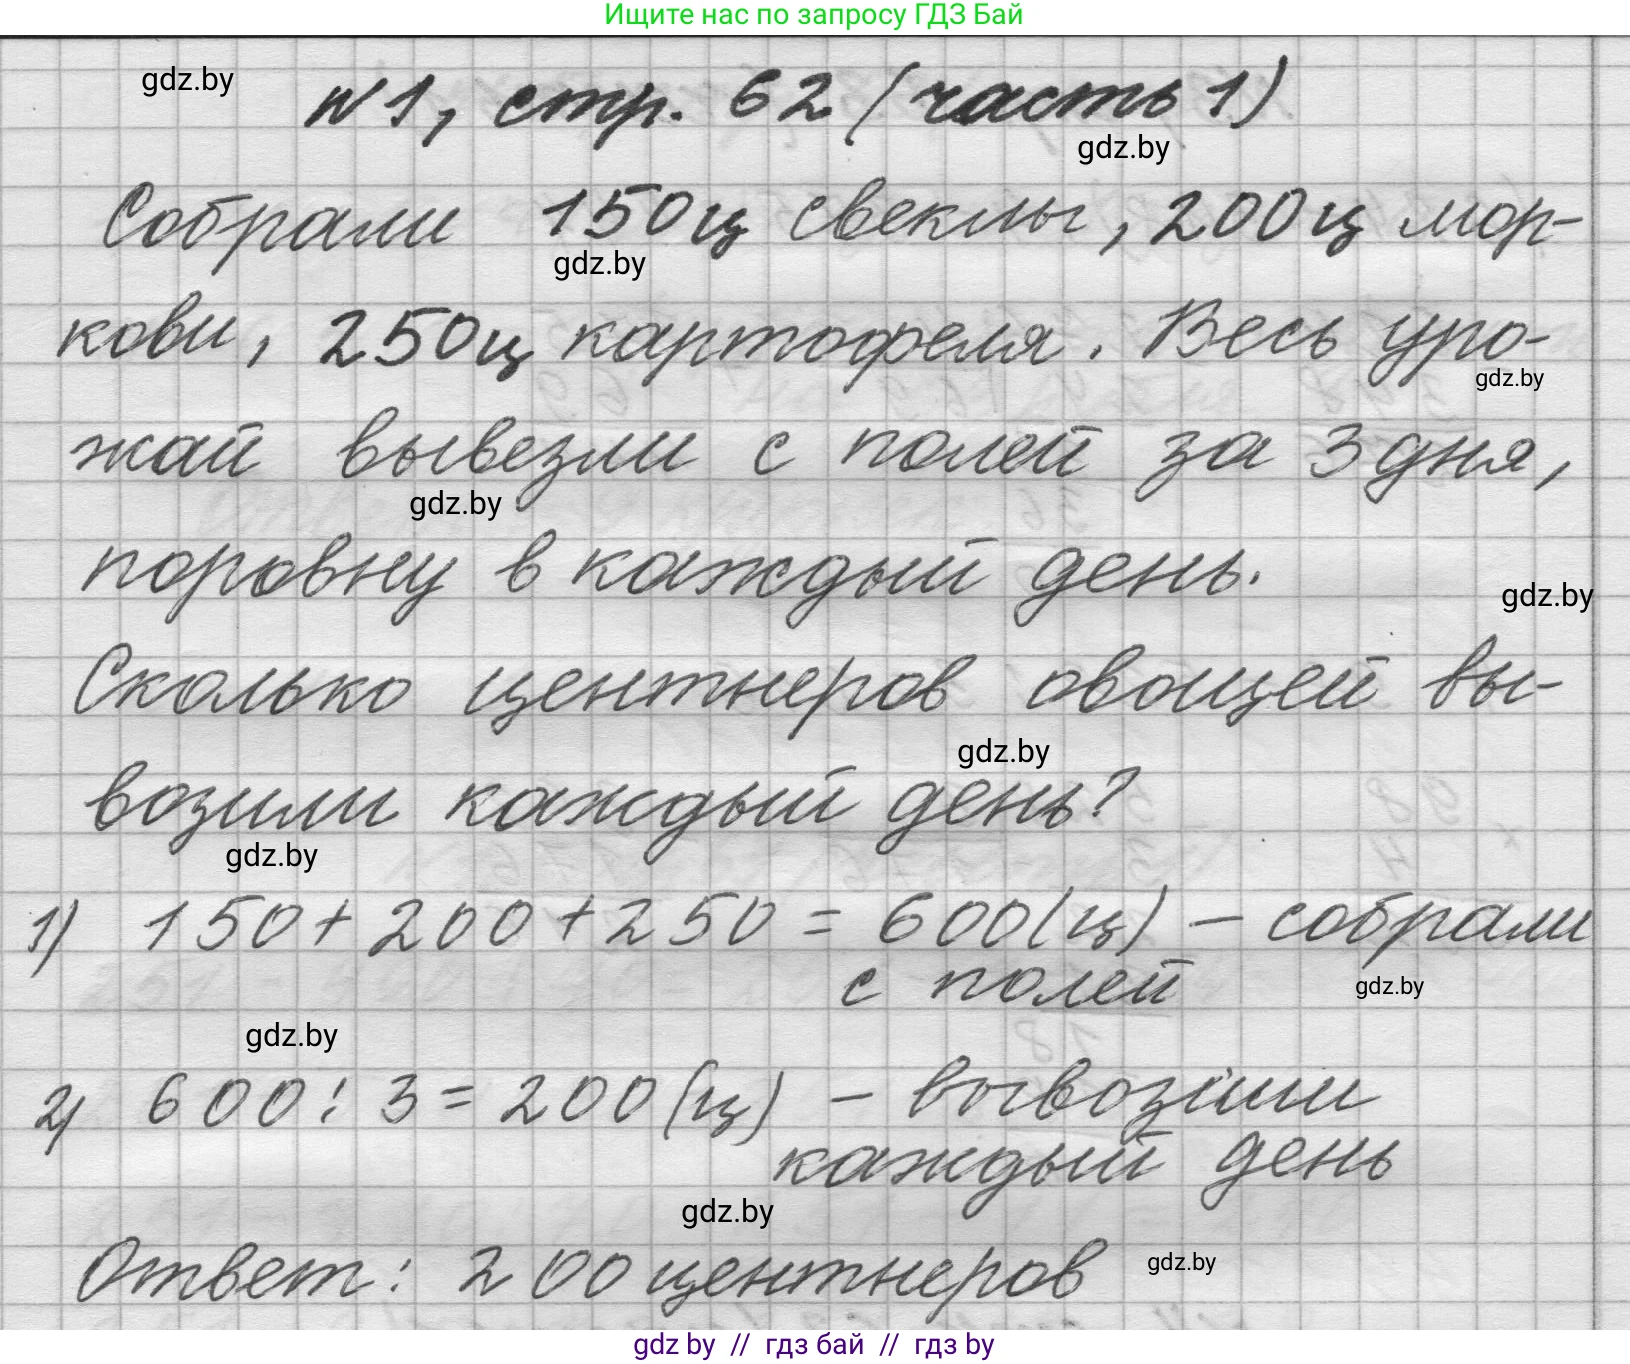 Ищите нас по запросу ГДЗ Бай
gdz.by
№1, стр. 62 (часть 1)
gdz.by
Собрали 150ц свеклы, 200ц мор-
gdz.by
кови, 250ц картофеля. Весь уро-
gdz.by
жай вывезли с полей за 3 дня,
gdz.by
поровну в каждый день.
gdz.by
Сколько центнеров овощей вы-
gdz.by
возили каждый день?
gdz.by
1) 150+200+250=600(ц) - собрали
с полей
gdz.by
gdz.by
2) 600:3=200(ц) - вывозили
каждый день
gdz.by
Ответ: 200 центнеров
gdz.by
gdz by // гдз бай // гдз by